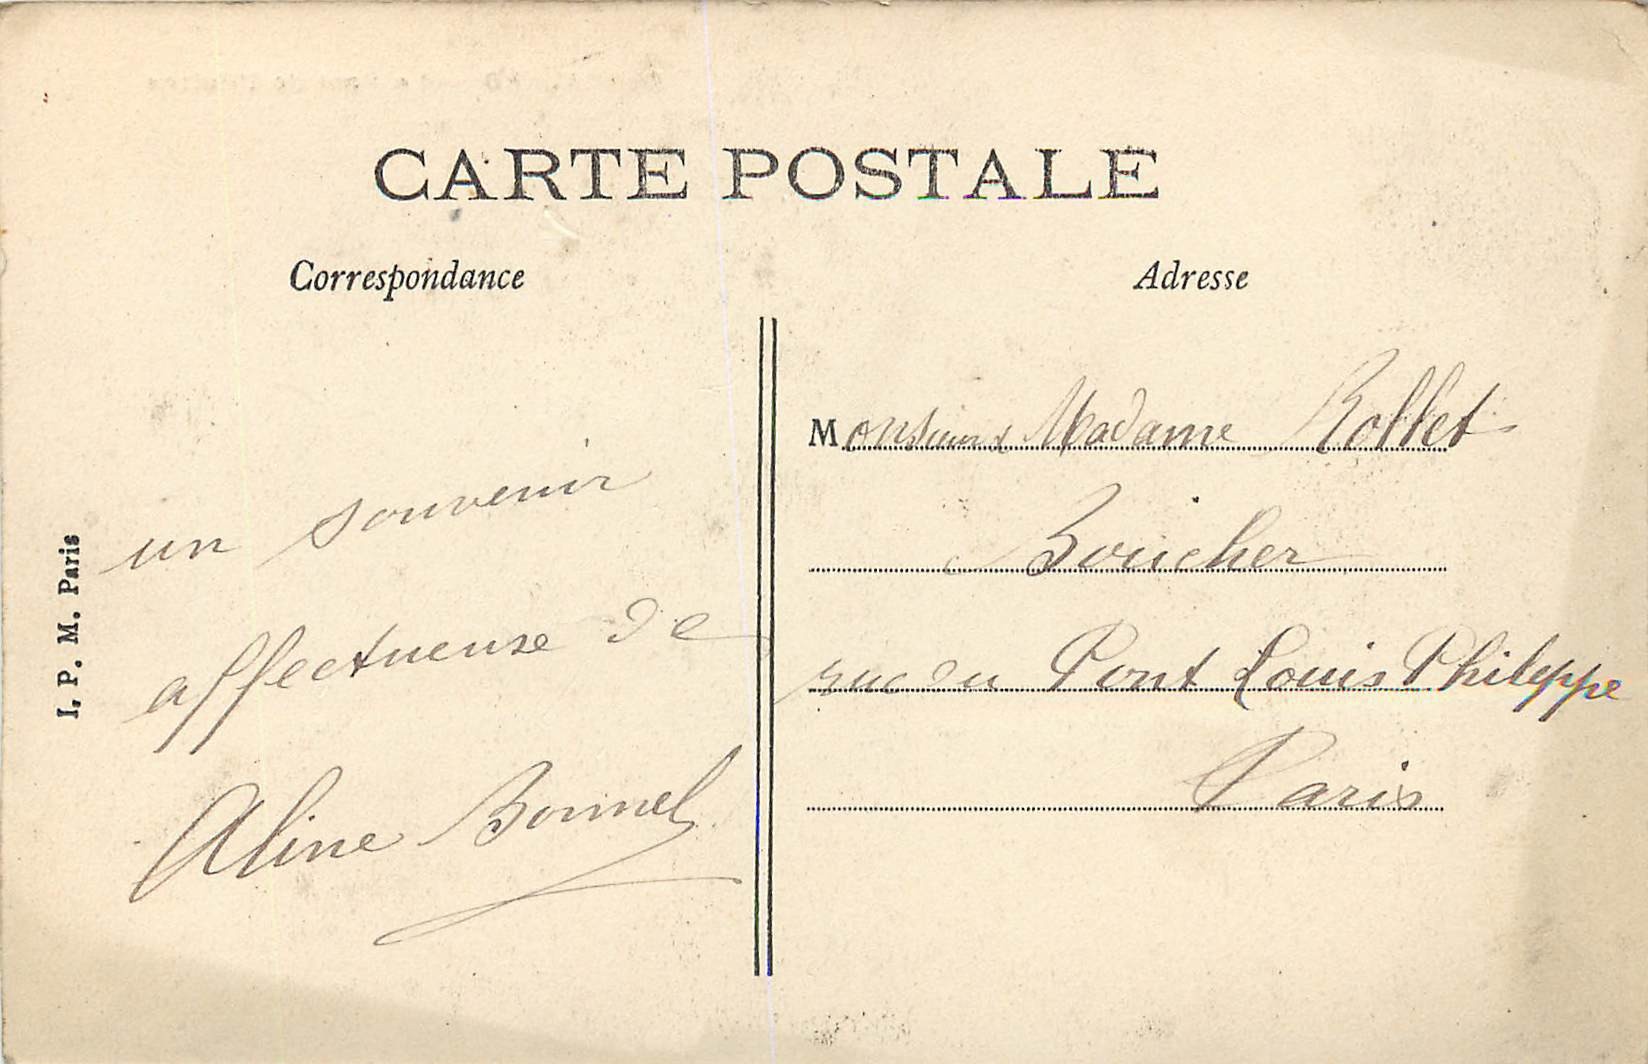 CARTE POSTALE
Correspondance
Adresse
un souvenir
affectueuse de
Aline Bonnel
I. P. M. Paris
Monsieur Madame Rollet
Boucher
rue du Pont Louis Philippe
Paris